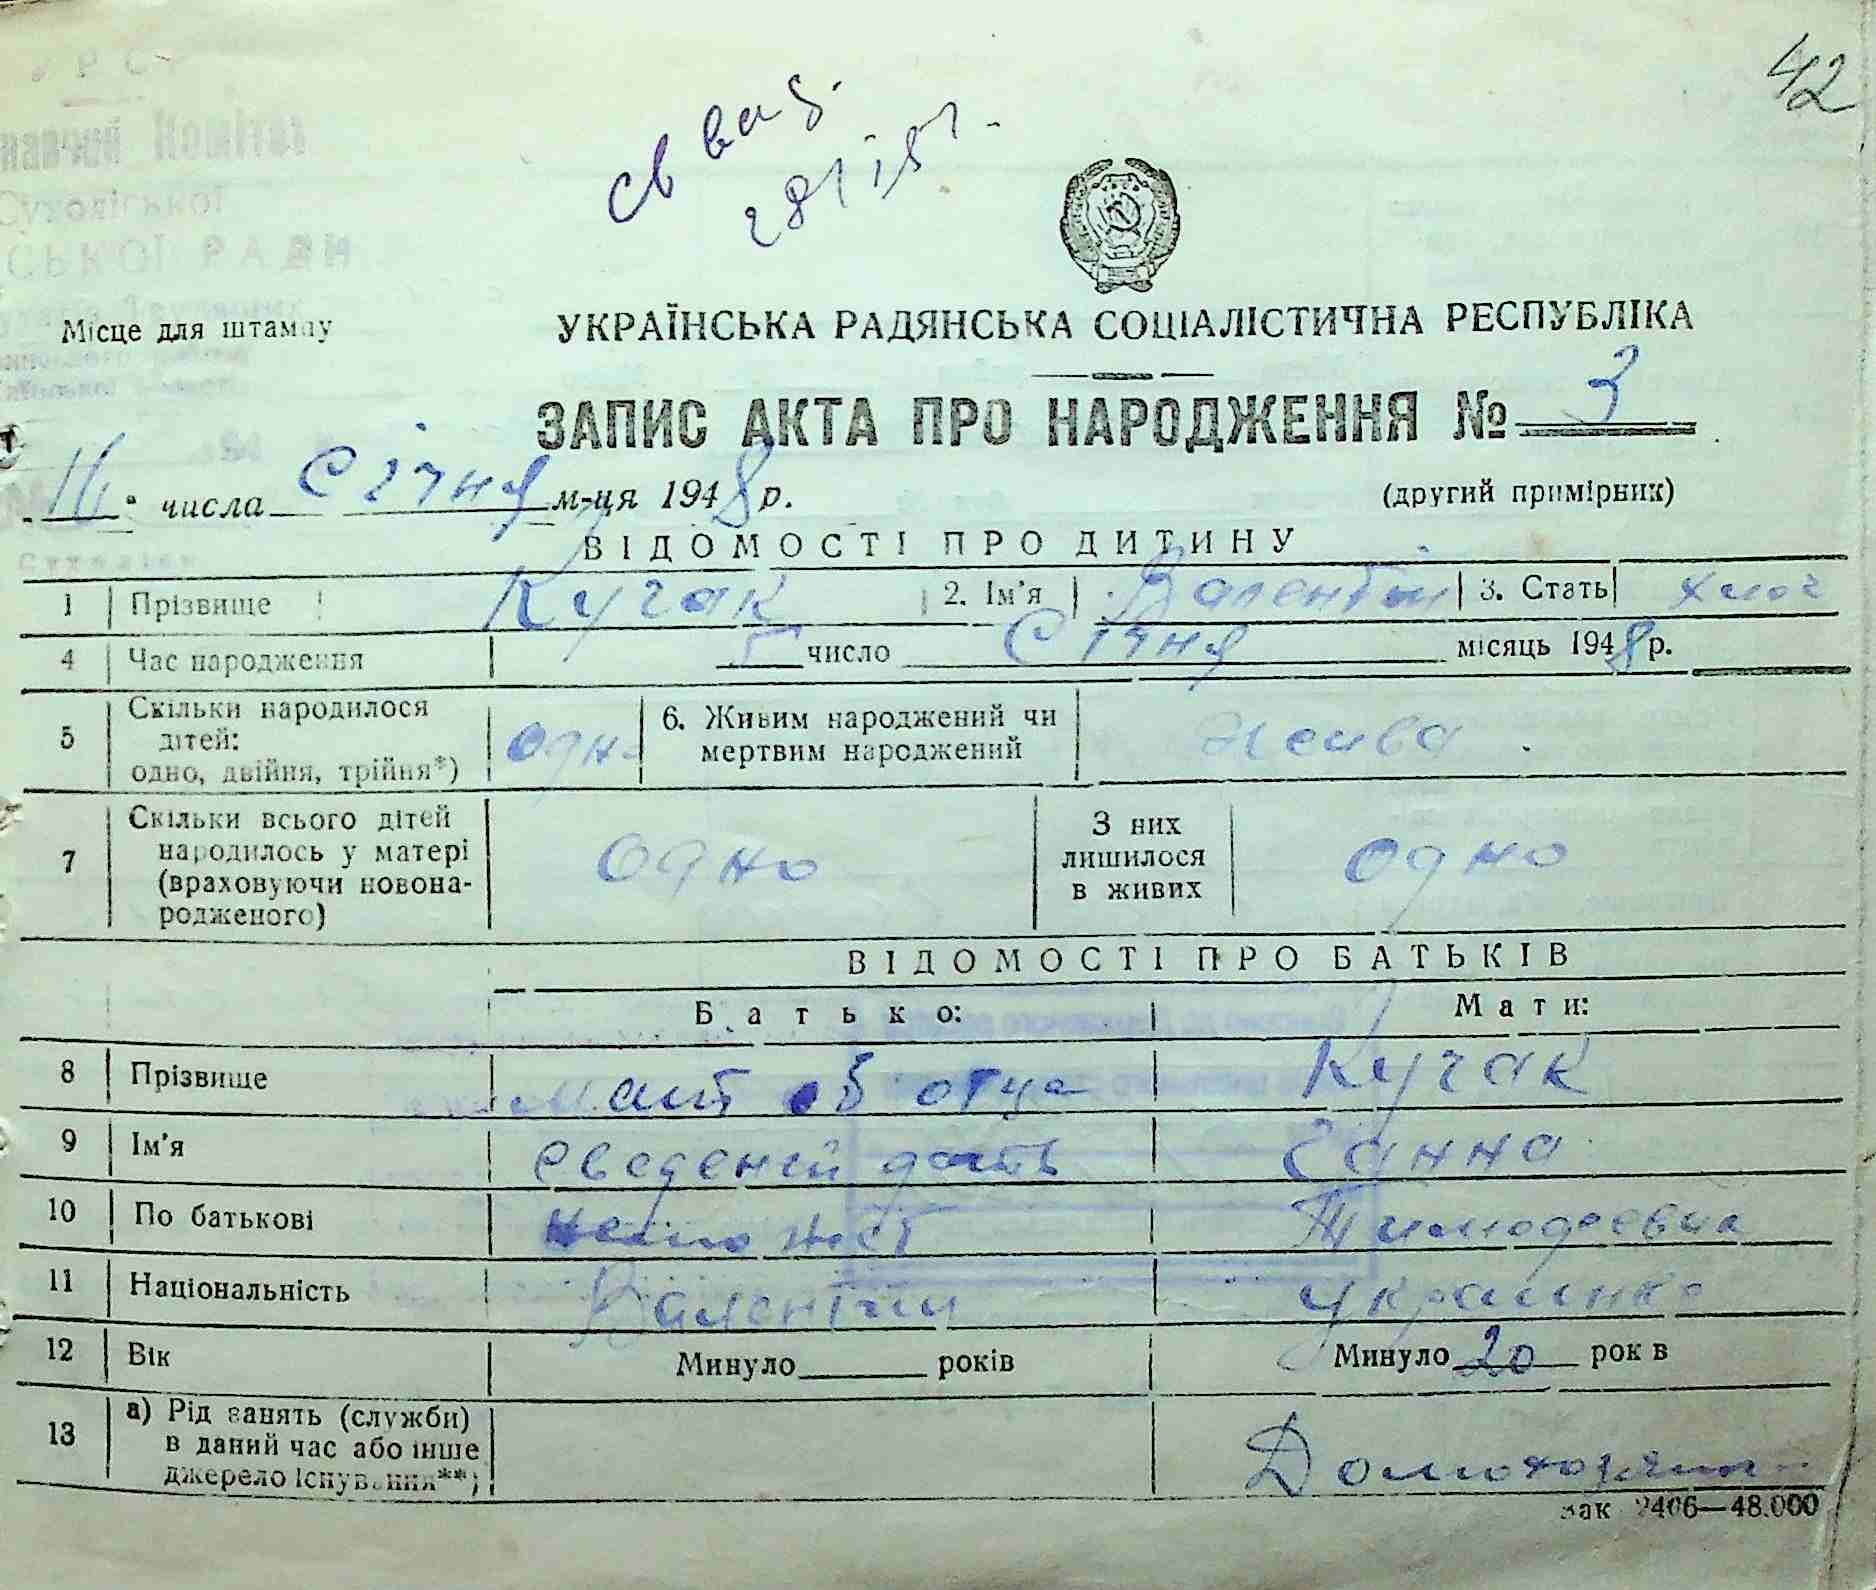 42
Св ва б.
УКРАЇНСЬКА РАДЯНСЬКА СОЦІАЛІСТИЧНА РЕСПУБЛІКА
Місце для штампу
ЗАПИС АКТА ПРО НАРОДЖЕННЯ № 3
числа Січня м-ця 1948 р.
(другий примірник)
ВІДОМОСТІ ПРО ДИТИНУ
1 Прізвище Кучак 2. Ім'я Валентін 3. Стать хлоч
4 Час народження число Січня місяць 1948 р.
5 Скільки народилося
дітей:
одно, двійня, трійня*)
одн-
6. Живим народжений чи
мертвим народжений
жива
7 Скільки всього дітей
народилось у матері
(враховуючи новона-
родженого)
одно
З них
лишилося
в живих
одно
ВІДОМОСТІ ПРО БАТЬКІВ
Батько: Мати:
8 Прізвище мать об отца Кучак
9 Ім'я сведеней дать Ганна
10 По батькові неможет Тимофеевна
11 Національність Валентін украинка
12 Вік Минуло років Минуло 20 рок в
13 а) Рід занять (служби)
в даний час або інше
джерело існування**)
Зак 2406—48.000